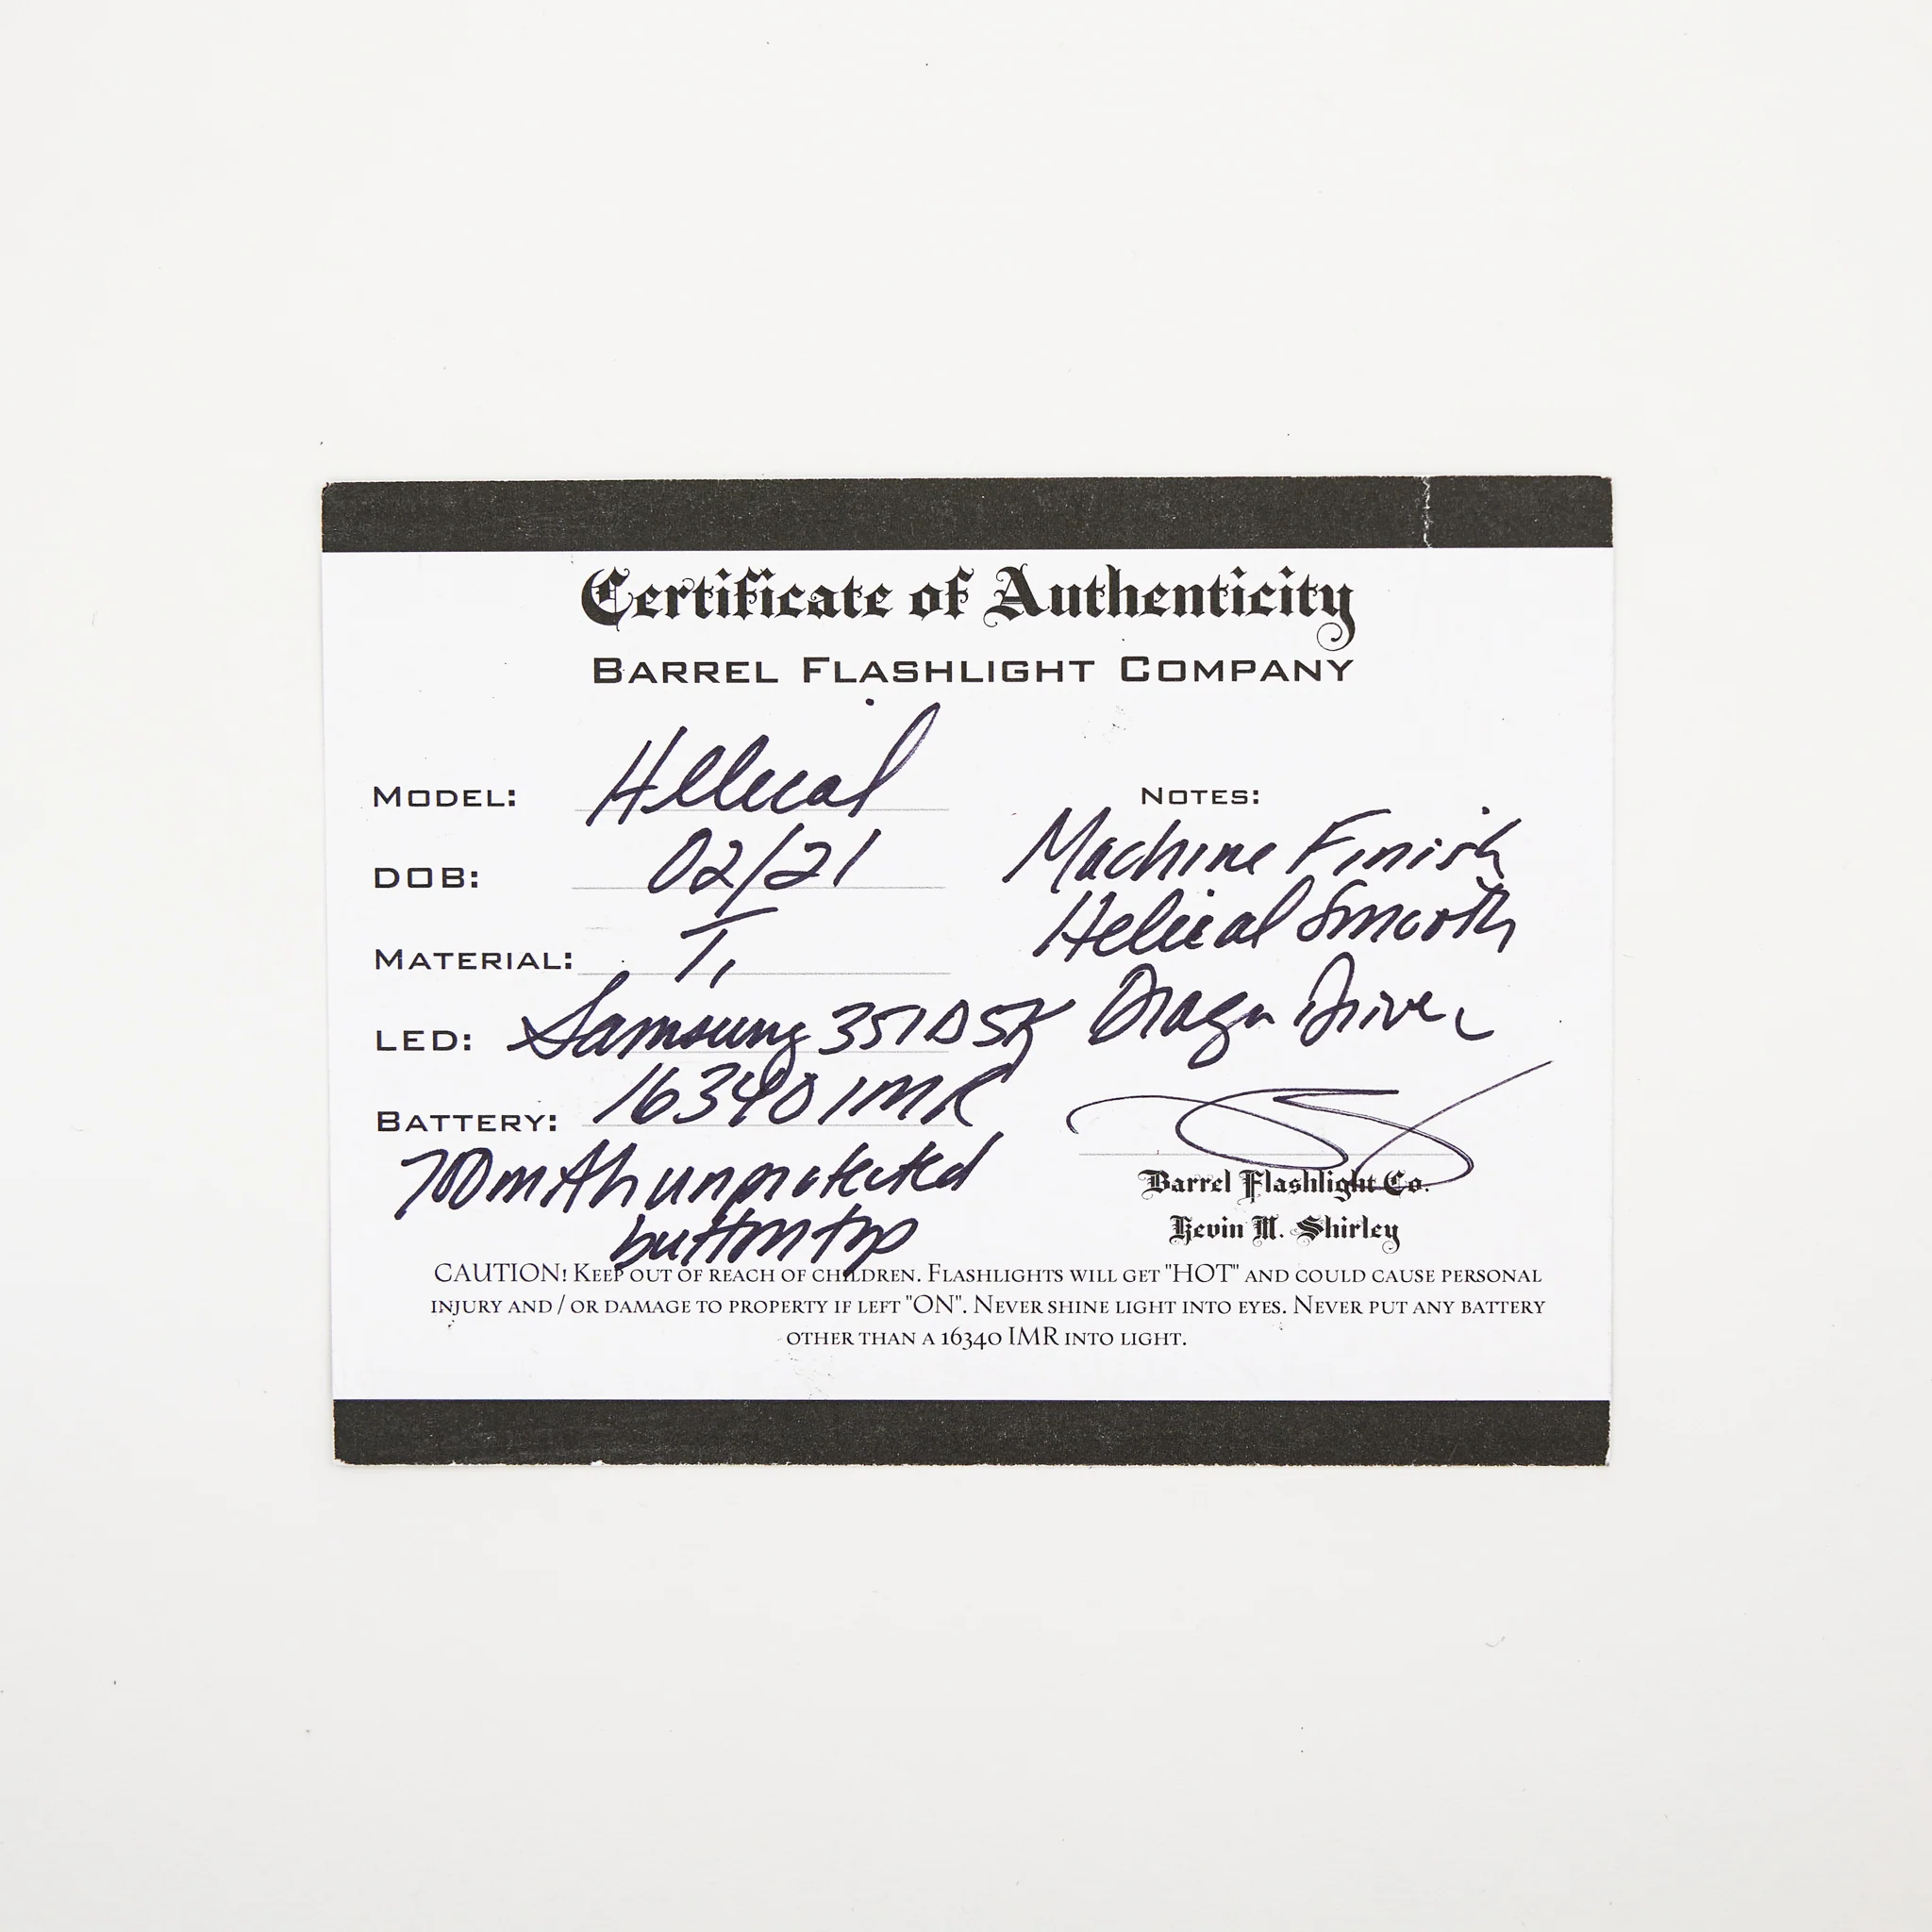 Certificate of Authenticity
BARREL FLASHLIGHT COMPANY
MODEL: Helical
DOB: 02/21
MATERIAL: Ti
LED: Samsung 351D 5K
BATTERY: 16340 IMR
700mAh unprotected
button top
NOTES:
Machine Finish
Helical Smooth
Dragon Driver
Barrel Flashlight Co.
Kevin M. Shirley
CAUTION! KEEP OUT OF REACH OF CHILDREN. FLASHLIGHTS WILL GET "HOT" AND COULD CAUSE PERSONAL
INJURY AND / OR DAMAGE TO PROPERTY IF LEFT "ON". NEVER SHINE LIGHT INTO EYES. NEVER PUT ANY BATTERY
OTHER THAN A 16340 IMR INTO LIGHT.